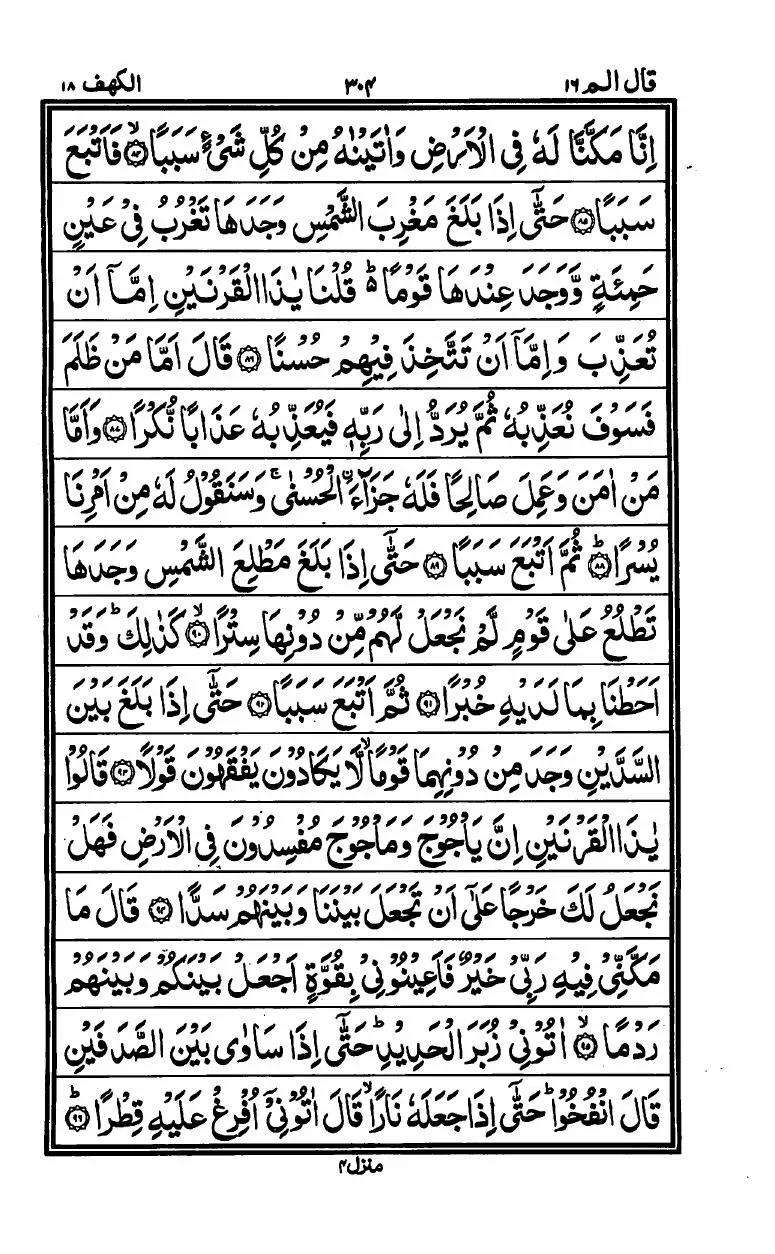 قال الم ١٦ ٣٠٤ الكهف ١٨
اِنَّا مَكَّنَّا لَهٗ فِى الْاَرْضِ وَاٰتَيْنٰهُ مِنْ كُلِّ شَىْءٍ سَبَبًا ۙ﴿٨٤﴾ فَاَتْبَعَ
سَبَبًا ﴿٨٥﴾ حَتّٰٓى اِذَا بَلَغَ مَغْرِبَ الشَّمْسِ وَجَدَهَا تَغْرُبُ فِىْ عَيْنٍ
حَمِئَةٍ وَّوَجَدَ عِنْدَهَا قَوْمًا ؕ۬ قُلْنَا يٰذَا الْقَرْنَيْنِ اِمَّآ اَنْ
تُعَذِّبَ وَاِمَّآ اَنْ تَتَّخِذَ فِيْهِمْ حُسْنًا ﴿٨٦﴾ قَالَ اَمَّا مَنْ ظَلَمَ
فَسَوْفَ نُعَذِّبُهٗ ثُمَّ يُرَدُّ اِلٰى رَبِّهٖ فَيُعَذِّبُهٗ عَذَابًا نُّكْرًا ﴿٨٧﴾ وَاَمَّا
مَنْ اٰمَنَ وَعَمِلَ صَالِحًا فَلَهٗ جَزَآءَ اۨلْحُسْنٰى ۚ وَسَنَقُوْلُ لَهٗ مِنْ اَمْرِنَا
يُسْرًا ؕ﴿٨٨﴾ ثُمَّ اَتْبَعَ سَبَبًا ﴿٨٩﴾ حَتّٰٓى اِذَا بَلَغَ مَطْلِعَ الشَّمْسِ وَجَدَهَا
تَطْلُعُ عَلٰى قَوْمٍ لَّمْ نَجْعَلْ لَّهُمْ مِّنْ دُوْنِهَا سِتْرًا ۙ﴿٩٠﴾ كَذٰلِكَ ؕ وَقَدْ
اَحَطْنَا بِمَا لَدَيْهِ خُبْرًا ﴿٩١﴾ ثُمَّ اَتْبَعَ سَبَبًا ﴿٩٢﴾ حَتّٰٓى اِذَا بَلَغَ بَيْنَ
السَّدَّيْنِ وَجَدَ مِنْ دُوْنِهِمَا قَوْمًا ۙ لَّا يَكَادُوْنَ يَفْقَهُوْنَ قَوْلًا ﴿٩٣﴾ قَالُوْا
يٰذَا الْقَرْنَيْنِ اِنَّ يَاْجُوْجَ وَمَاْجُوْجَ مُفْسِدُوْنَ فِى الْاَرْضِ فَهَلْ
نَجْعَلُ لَكَ خَرْجًا عَلٰٓى اَنْ تَجْعَلَ بَيْنَنَا وَبَيْنَهُمْ سَدًّا ﴿٩٤﴾ قَالَ مَا
مَكَّنِّىْ فِيْهِ رَبِّىْ خَيْرٌ فَاَعِيْنُوْنِىْ بِقُوَّةٍ اَجْعَلْ بَيْنَكُمْ وَبَيْنَهُمْ
رَدْمًا ۙ﴿٩٥﴾ اٰتُوْنِىْ زُبَرَ الْحَدِيْدِ ؕ حَتّٰٓى اِذَا سَاوٰى بَيْنَ الصَّدَفَيْنِ
قَالَ انْفُخُوْا ؕ حَتّٰٓى اِذَا جَعَلَهٗ نَارًا ۙ قَالَ اٰتُوْنِىْٓ اُفْرِغْ عَلَيْهِ قِطْرًا ؕ﴿٩٦﴾
منزل ٤